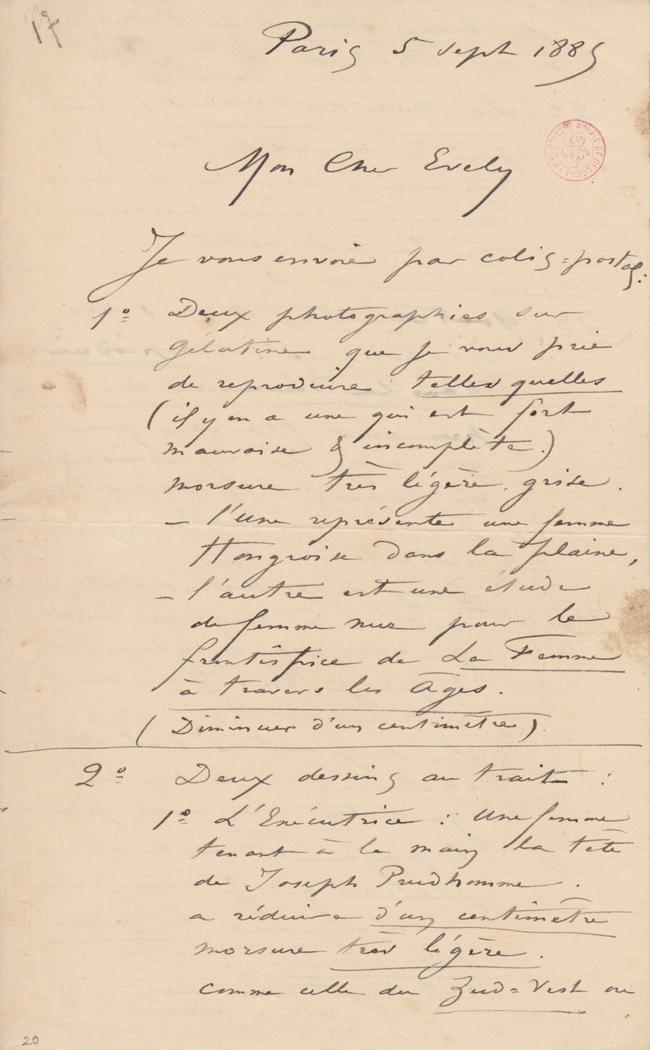 17
Paris 5 Sept 1885
Mon Cher Evely
Je vous envoie par colis=postal:
1º Deux photographies sur
gélatine que je vous prie
de reproduire telles quelles
(il y en a une qui est fort
mauvaise & incomplète.)
morsure très légère, grise.
— l'une représente une femme
Hongroise dans la plaine,
— l'autre est une étude
de femme nue pour le
frontispice de La Femme
à travers les Âges.
(Diminuer d'un centimètre)
2º Deux dessins au trait :
1º L'Exécutrice : Une femme
tenant à la main la tête
de Joseph Prudhomme.
a réduire d'un centimètre
morsure très légère.
comme celle du Zud=West ou
20